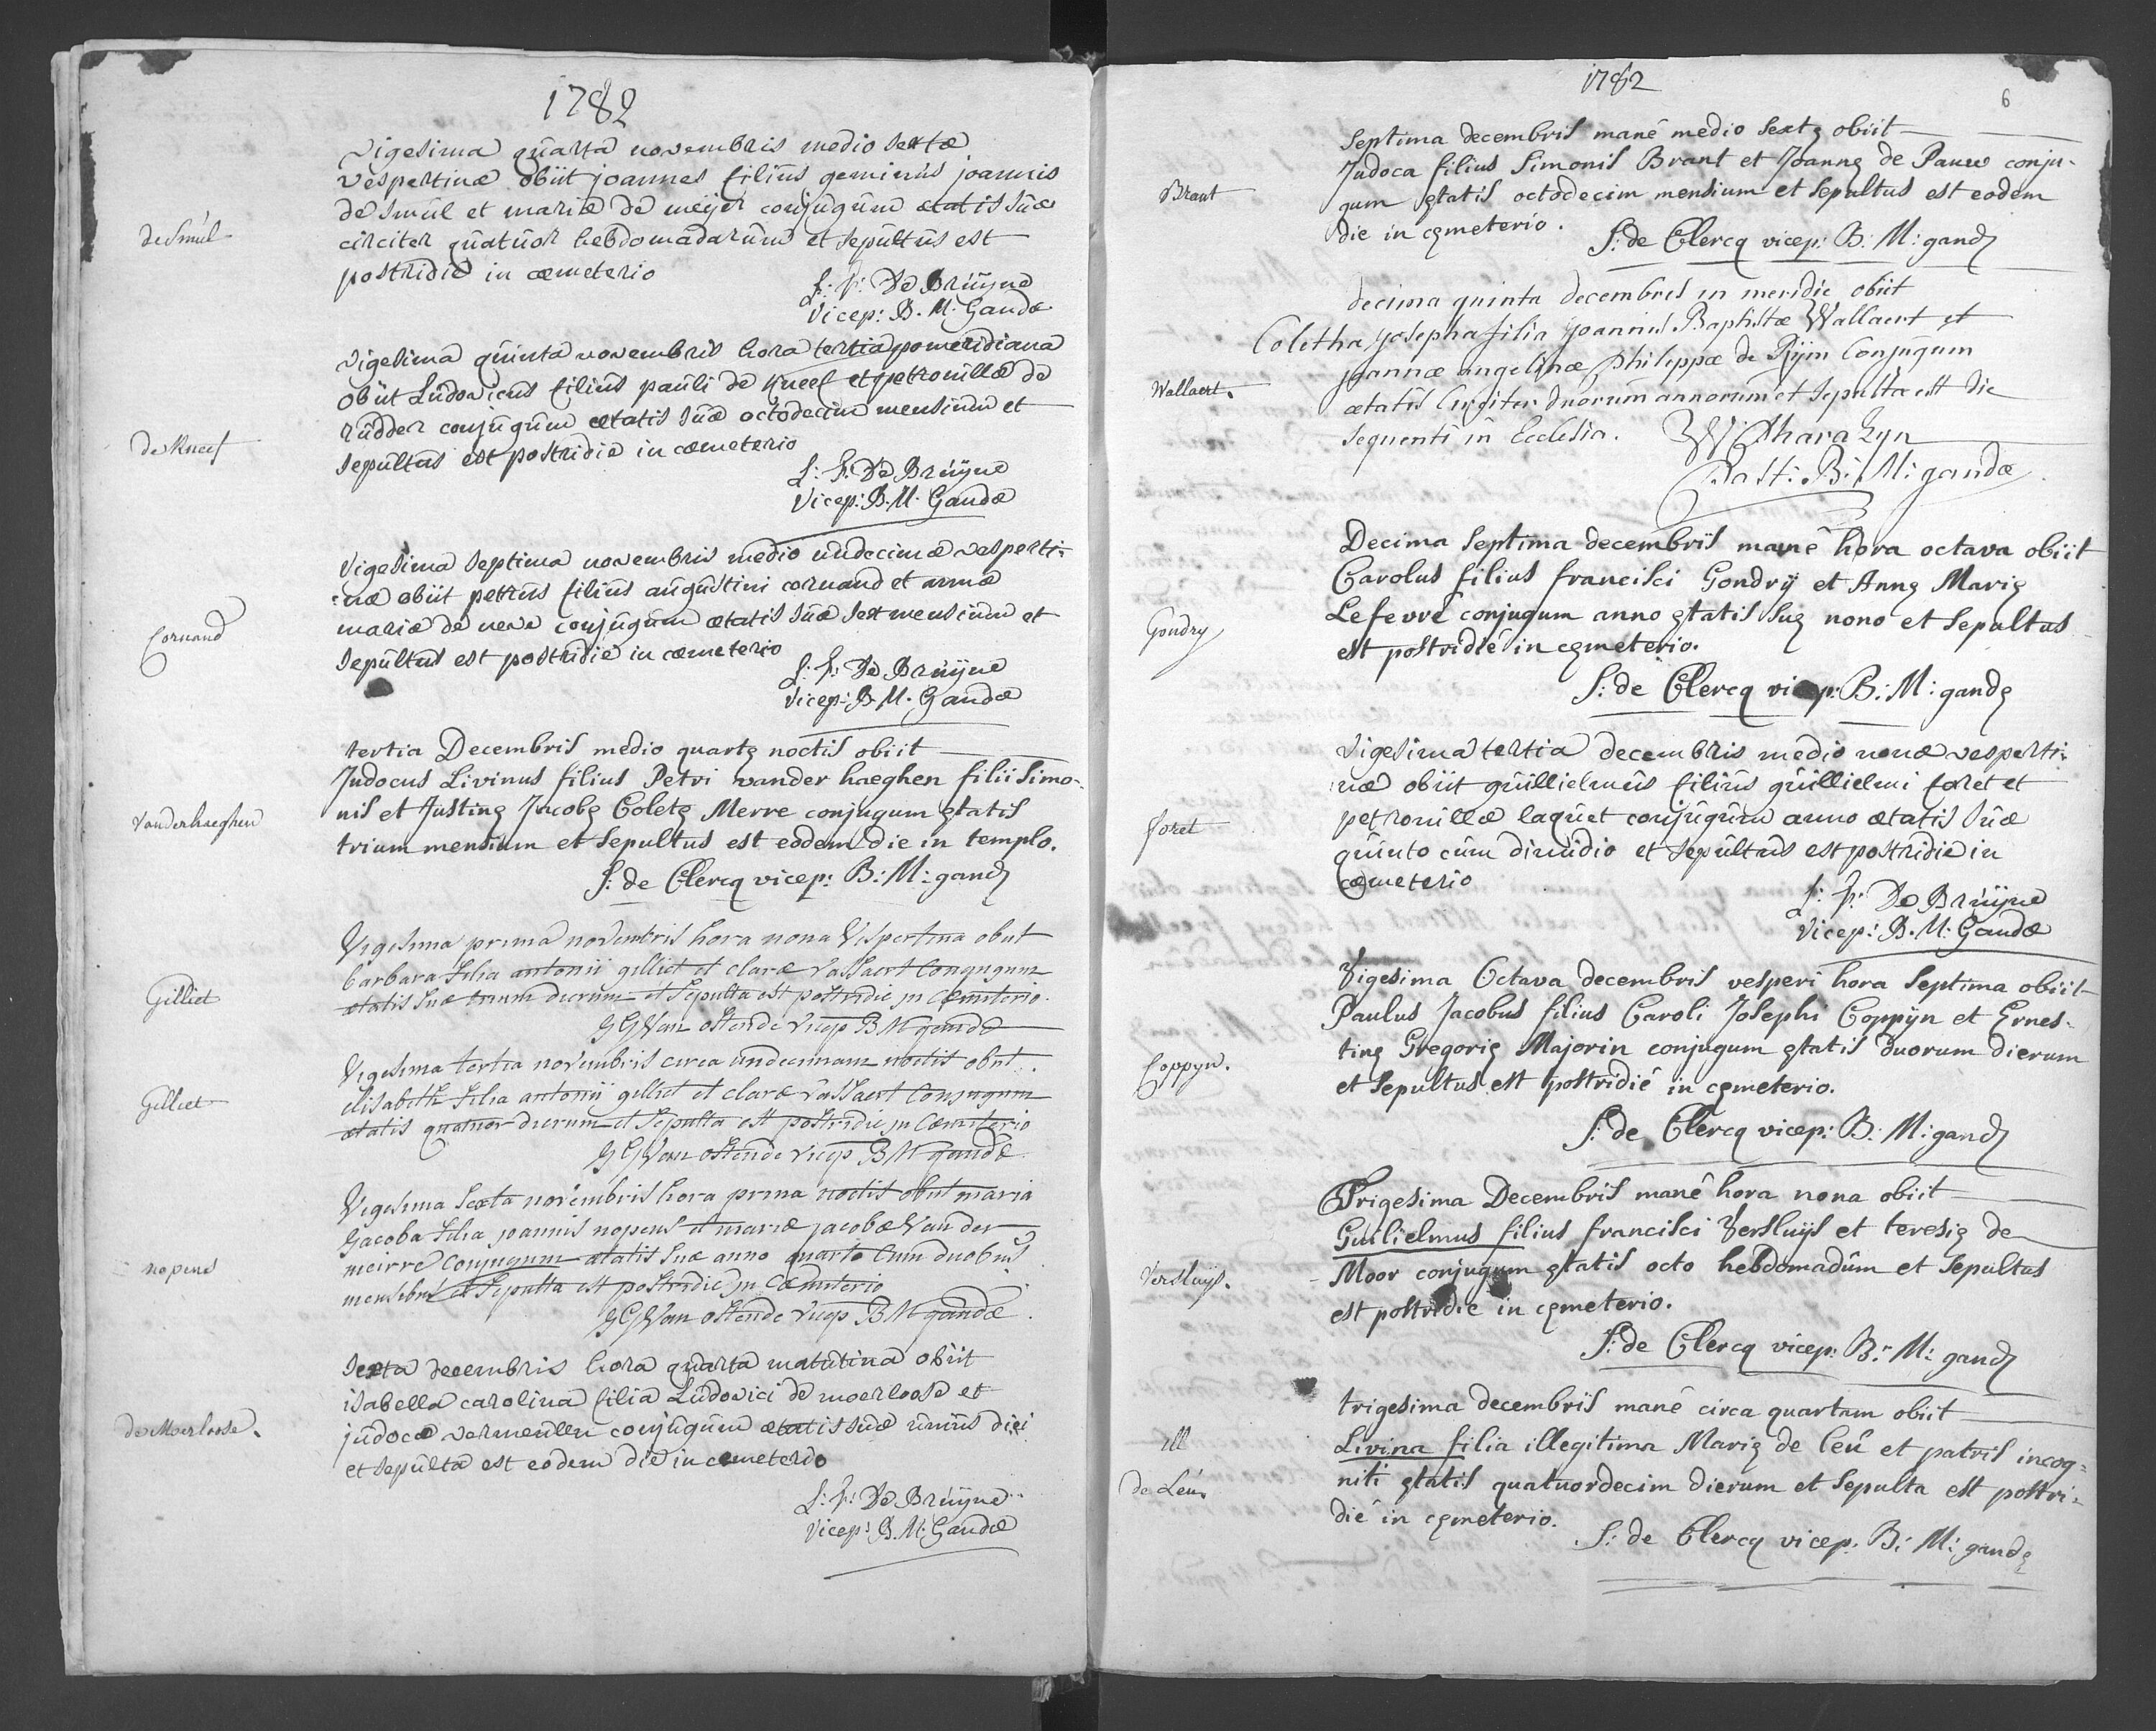 1782
vigesima quarta novembris medio sextæ
vespertinæ obiit joannes filius geminus joannis
de Smul et mariæ de meijer conjugum ætatis suæ
circiter quatuor hebdomadarum et sepultus est
postridie in cæmeterio
de Smul
De Bruijne
vicep: B. M. Gandæ
vigesima quinta novembris hora tertia pomeridiana
obiit Ludovicus filius pauli de Kneef et petronillæ de
rudder conjugum ætatis suæ octodecim mensium et
sepultus est postridie in cæmeterio
de Kneef
De Bruijne
vicep: B. M. Gandæ
vigesima septima novembris medio undecimæ vesperti-
:næ obiit petrus filius augustini cornand et annæ
mariæ de neve conjugum ætatis suæ sex mensium et
sepultus est postridie in cæmeterio
Cornand
De Bruijne
vicep: B. M. Gandæ
tertia Decembris medio quartę noctis obiit
Judocus Livinus filius Petri vander haeghen filii Simo-
nis et Justinę Jacobę Coletę Merre conjugum ętatis
trium mensium et sepultus est eodem die in templo.
Vanderhaeghen
S: de Clercq vicep: B: M: gandę
Vigesima prima novembris hora nona Vespertina obiit
barbara filia antonii gilliet et claræ vassaert Conjugum
ætatis suæ trium dierum et sepulta est postridie in Cæmiterio.
Gilliet
Van ostende vicep B M gandæ
Vigesima tertia novembris circa undecimam noctis obiit
elisabeth filia antonii gilliet et claræ vassaert Conjugum
ætatis quatuor dierum et sepulta est postridie in Cæmiterio
Gilliet
Van ostende vicep B M gandæ
Vigesima sexta novembris hora prima noctis obiit maria
Jacoba filia joannis nopens et mariæ jacobæ Van der
meirre Conjugum ætatis suæ anno quarto Cum duobus
mensibus et sepulta est postridie in Cæmiterio
nopens
Van ostende vicep B M gandæ
sexta decembris hora quarta matutina obiit
isabella carolina filia Ludovici de moerloose et
judocæ vermeulen conjugum ætatis suæ unius diei
et sepulta est eodem die in cemeterio
de Moerloose.
De Bruijne
vicep: B. M. Gandæ
1782
6
Septima decembris manè medio sextę obiit
Judoca filius Simonis Brant et Joannę de Pauw conju-
gum ętatis octodecim mensium et sepultus est eodem
die in cęmeterio.
Brant
S: de Clercq vicep: B: M: gandę
decima quinta decembris in meridie obiit
Coletha josepha filia joannis Baptistæ Wallaert et
joannæ angelinæ philippæ de Rijm Conjugum
ætatis Circiter duorum annorum et sepulta est die
sequenti in Ecclesia.
Wallaert.
Past: B: M: gandæ
Decima septima decembris manè hora octava obiit
Carolus filius francisci Gondrij et Annę Marię
Lefevre conjugum anno ętatis suę nono et sepultus
est postridie in cęmeterio.
Gondry
S: de Clercq vicep: B: M: gandę
vigesima tertia decembris medio nonæ vesperti-
næ obiit guillielmus filius guillielmi foret et
petronillæ laquet conjugum anno ætatis suæ
quinto cum dimidio et sepultus est postridie in
cæmeterio
foret
De Bruijne
vicep: B. M. Gandæ
Vigesima Octava decembris vesperi hora septima obiit
Paulus Jacobus filius Caroli Josephi Coppijn et Ernes-
tinę Gregorię Majorin conjugum ętatis duorum dierum
et sepultus est postridiè in cęmeterio.
Coppyn.
S: de Clercq vicep: B: M: gandę
Trigesima Decembris manè hora nona obiit
Guilielmus filius francisci Versluijs et teresię de
Moor conjugum ętatis octo hebdomadum et sepultus
est postridie in cęmeterio.
Versluijs.
S: de Clercq vicep: B: M: gandę
trigesima decembris manè circa quartam obiit
Livina filia illegitima Marię de leu et patris incog-
niti ętatis quatuordecim dierum et sepulta est postri-
die in cęmeterio.
ill
de Leu.
S: de Clercq vicep: B: M: gandę